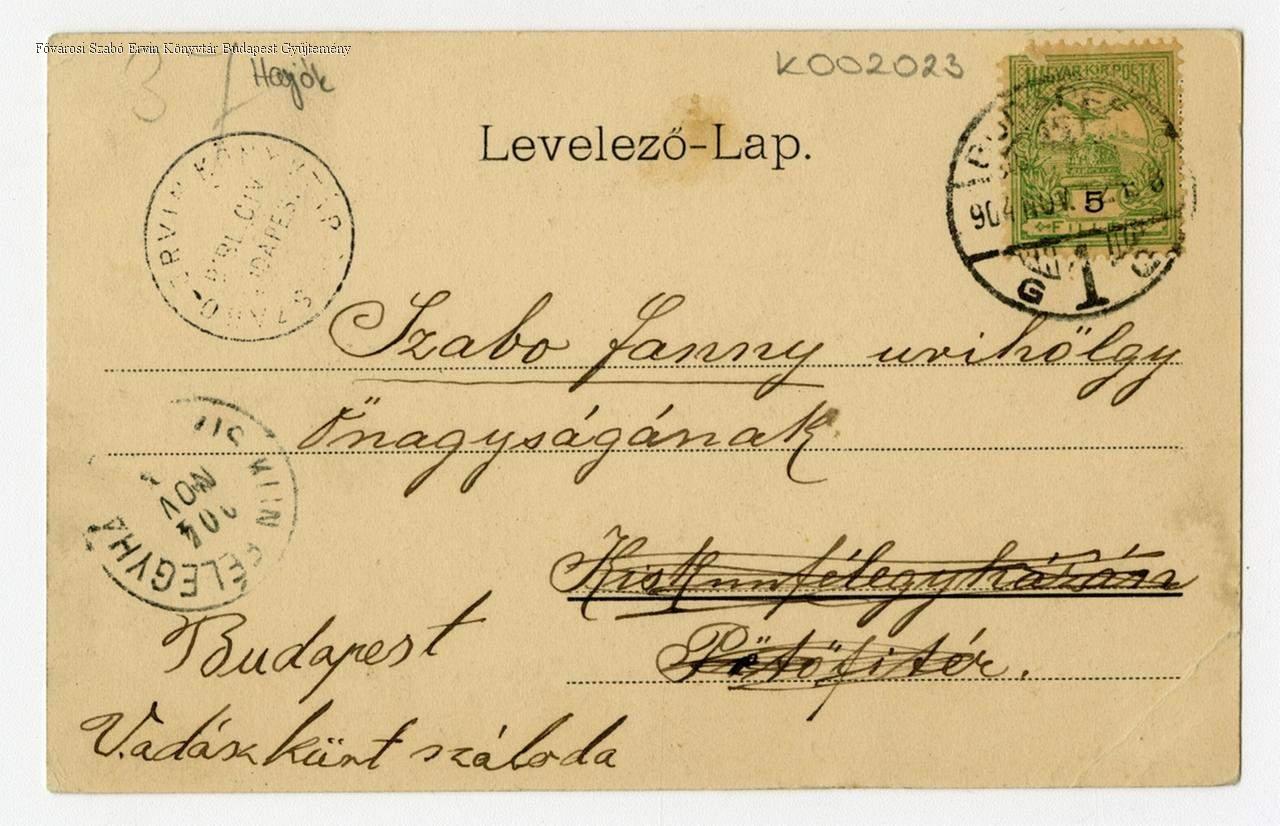 Fővárosi Szabó Ervin Könyvtár Budapest Gyűjtemény
37
Hajók
K002023
MAGYAR KIR. POSTA
5
FILLÉR
904 NOV.
1
Levelező-Lap.
ERVIN KÖNYVTÁR
SZABÓ
Szabo Fanny urihölgy
Őnagyságának
NOV
904
FÉLEGYHÁ
Kiskunfélegyházán
Petőfitér.
Budapest
Vadászkürt száloda